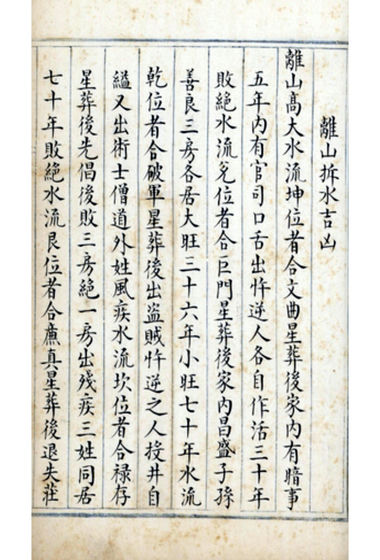 離山拆水吉凶
離山髙大水流坤位者合文曲星葬後家內有暗事
五年內有官司口舌出忤逆人各自作活三十年
敗絕水流兌位者合巨門星葬後家內昌盛子孫
善良三房各居大旺三十六年小旺七十年水流
乾位者合破軍星葬後出盜賊忤逆之人投井自
縊又出術士僧道外姓風疾水流坎位者合祿存
星葬後先倡後敗三房絕一房出殘疾三姓同居
七十年敗絕水流艮位者合亷真星葬後退失莊